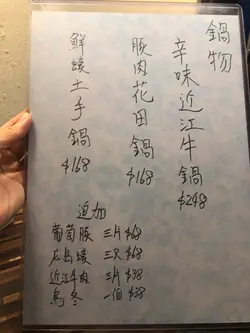 鍋物
辛味近江牛鍋 $248
豚肉花田鍋 $168
鮮蠔土手鍋 $168
追加
葡萄豚 三片 $68
広島蠔 三只 $68
近江牛肉 三片 $98
烏冬 一個 $38